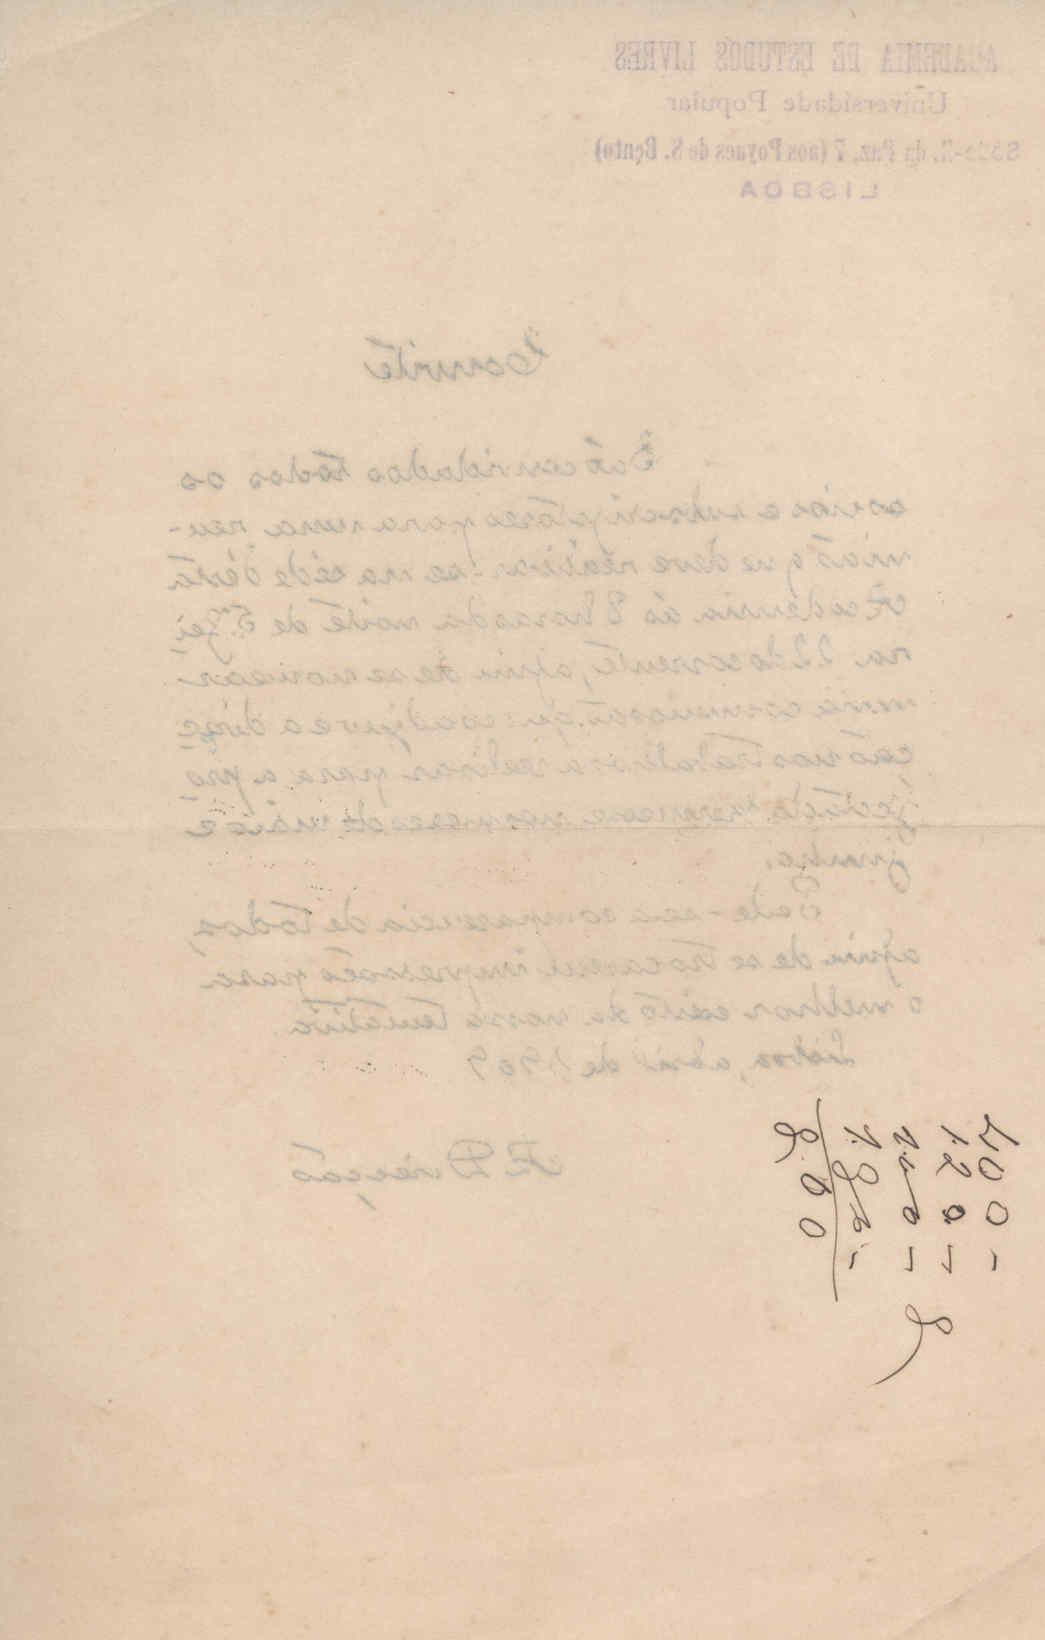 ACADEMIA DE ESTUDOS LIVRES
Universidade Popular
Séde-R. da Paz, 7 (aos Poyaes de S. Bento)
LISBOA
Convite
São convidados todos os
socios e subscriptores para uma reu-
nião que deve realisar-se na séde désta
Academia ás 8 horas da noite de 5.ª fei
ra 22 do corrente, afim de se nomear
uma commissão que coadjuve a direc
ção nos trabalhos a realisar para a pro
jectada kermesse nos mezes de maio e
junho.
Pede-se a comparencia de todos,
afim de se trocarem impressões para
o melhor exito da nossa tentativa.
Lisboa, abril de 1909
A Direcção